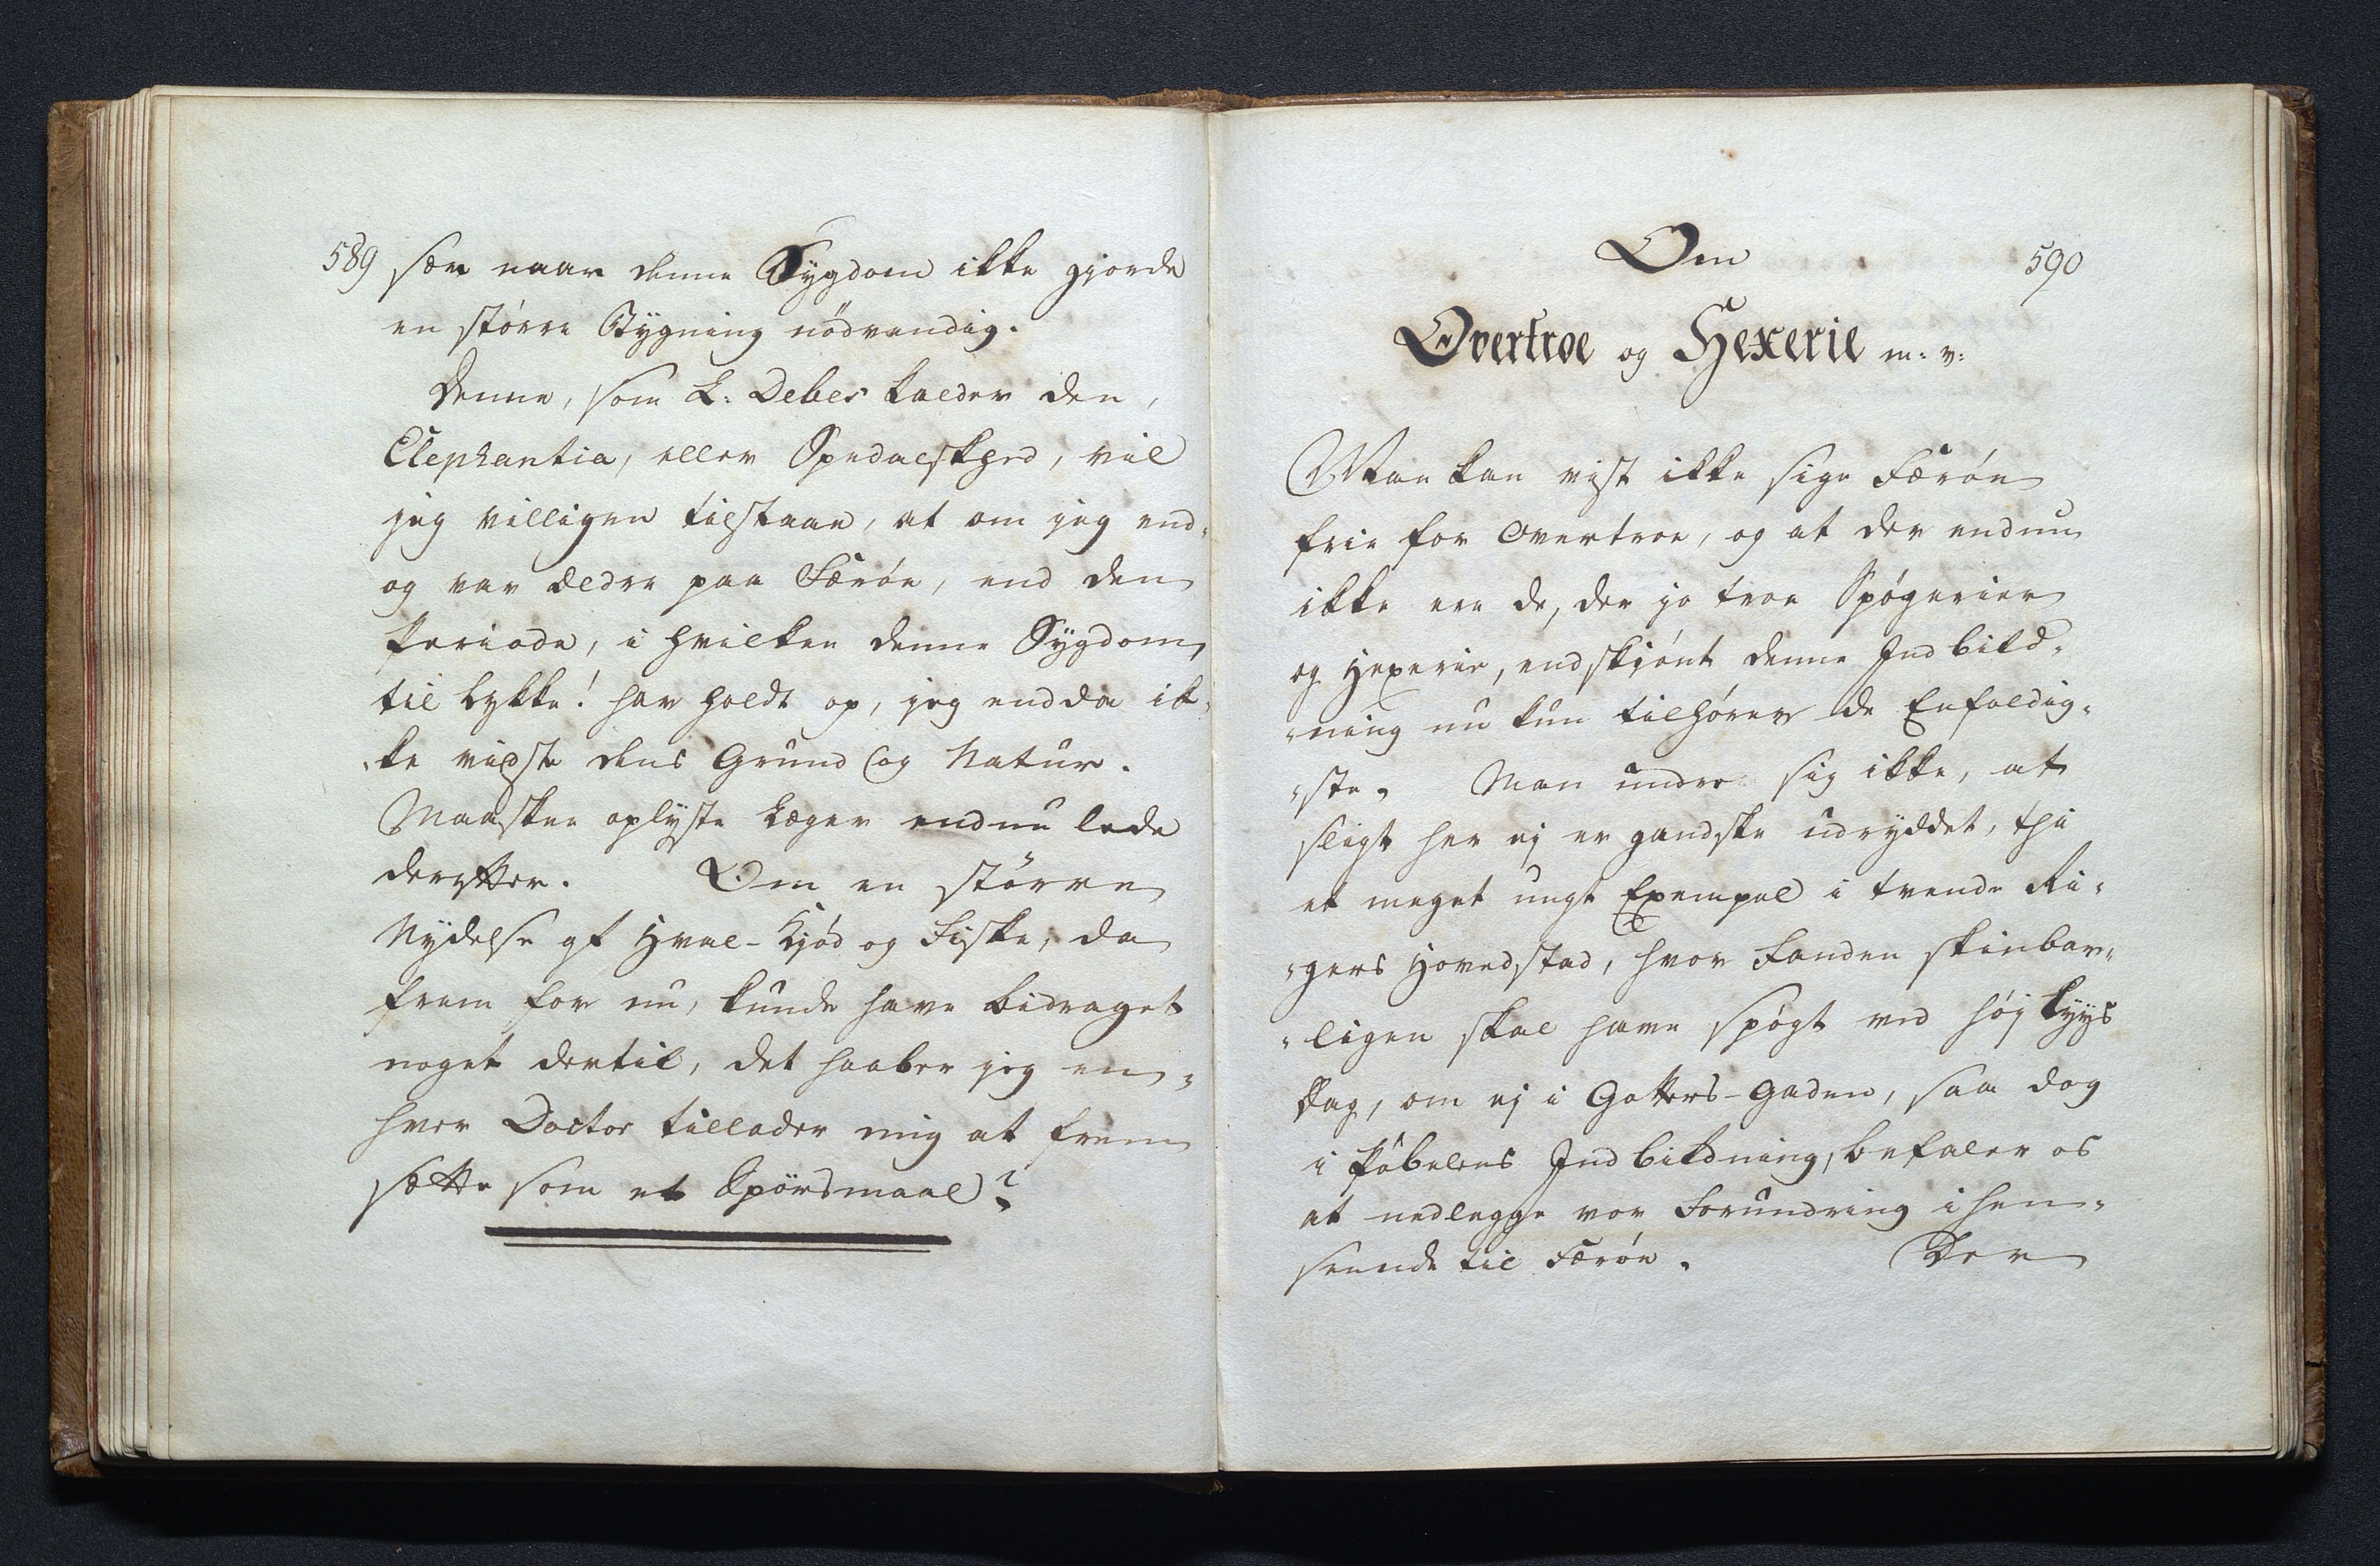 589
sær naar denne Sygdom ikke gjorde
en større Bygning nödvendig.
Denne, som L: Debes kalder den,
Elephantia, eller Spedalskhed, vil
jeg villigen tilstaae, at om jeg end-
og var ældre paa Færöe, end den
Periode, i hvilken denne Sygdom,
til Lykke! har holdt op, jeg endda ik-
-ke vidste dens Grund og Natur.
Maaskee oplyste Læger endnu lede
derefter. Om en större
Nydelse af Hval-Kjöd og Fiske, da
frem for nu, kunde have bidraget
noget dertil, det haaber jeg en-
hver Doctor tillader mig at frem
sætte som et Spörsmaal?
590
Om
Overtroe og Hexerie m: v:
Man kan vist ikke sige Færöe
frie for Overtroe, og at der endnu
ikke ere de, der jo troe Spögerier
og Hexerie, endskjönt denne Indbild-
-ning nu kun tilhörer de Enfoldig-
-ste. Man undre sig ikke, at
sligt her ej er gandske udryddet, thi
et meget ungt Exempel i tvende Ri-
-gers Hovedstad, hvor Fanden skinbar-
-ligen skal have spögt ved höj Lyys
Dag, om ej i Gotters-Gaden, saa dog
i Pöbelens Indbildning, befaler os
at nedlegge vor Forundring i hen-
seende til Færöe. Der